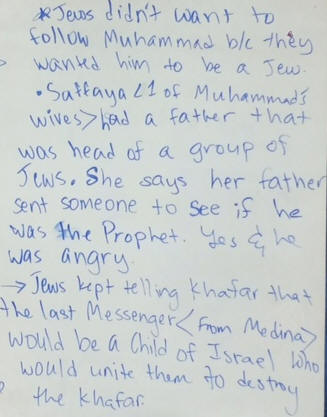 *Jews didn't want to
follow Muhammad b/c they
wanted him to be a Jew.
• Saffaya <1 of Muhammad's
wives> had a father that
was head of a group of
Jews. She says her father
sent someone to see if he
was the Prophet. Yes & he
was angry.
→ Jews kept telling Khafar that
the last Messenger <from Medina>
would be a Child of Israel who
would unite them to destroy
the khafar